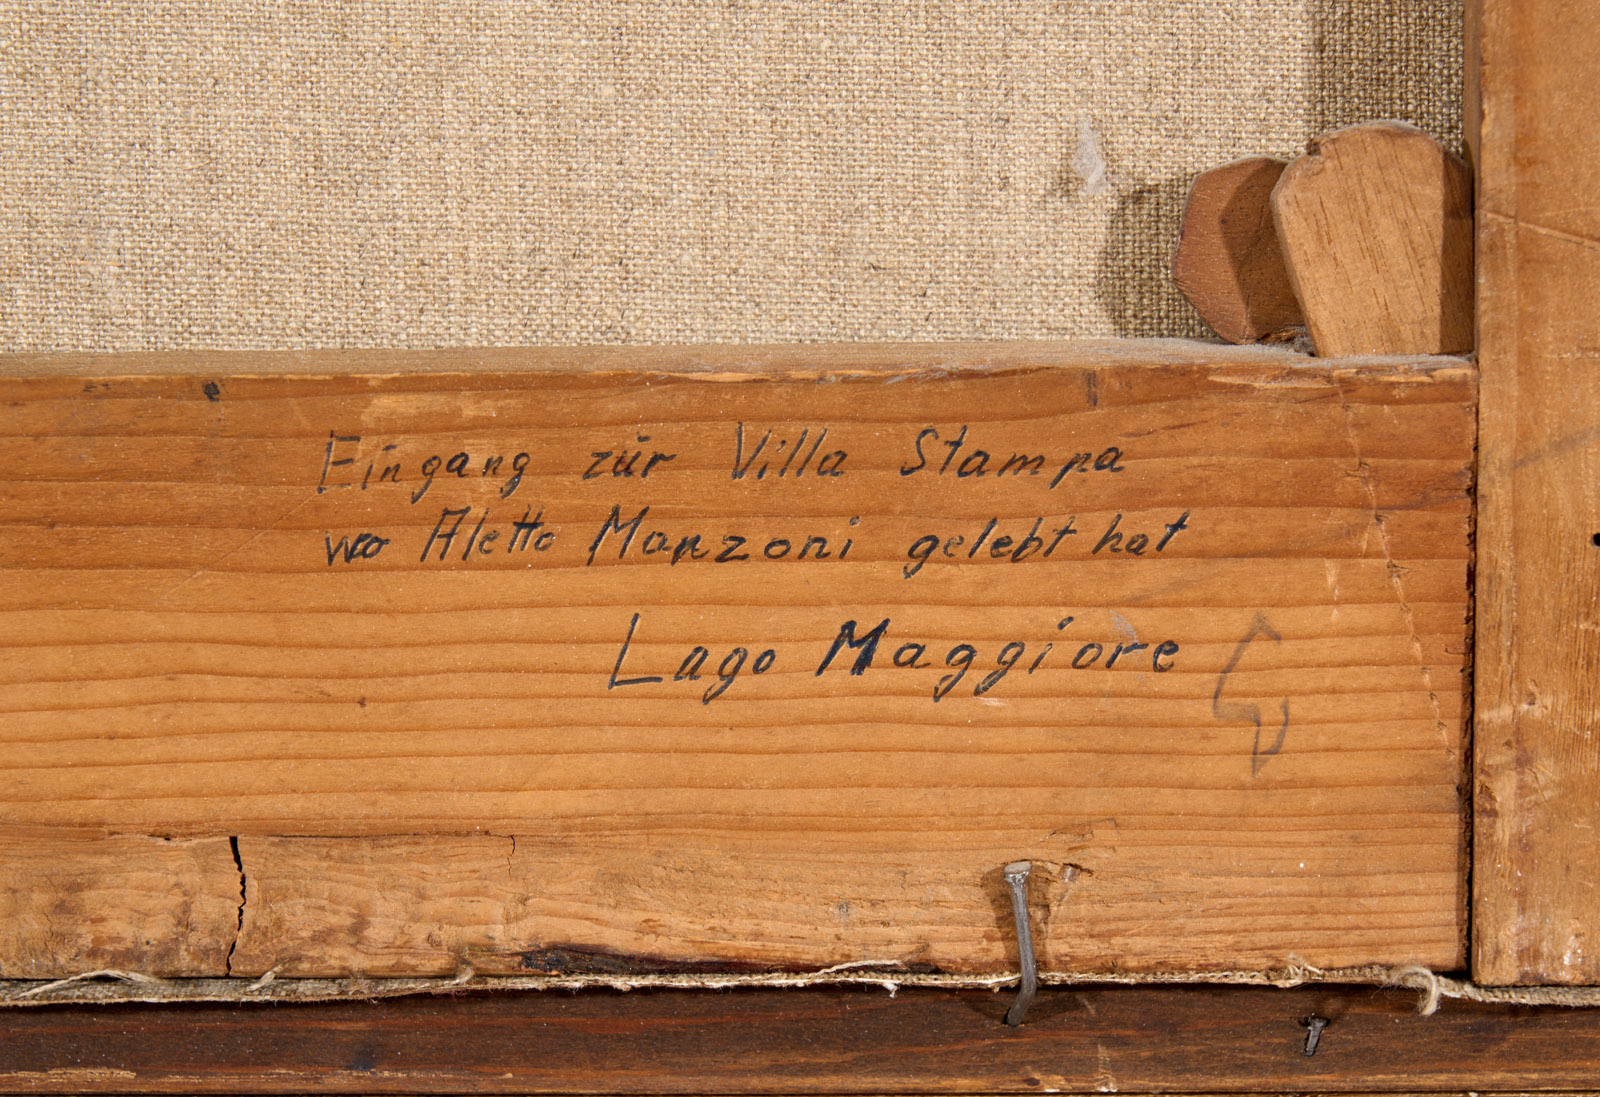 Eingang zur Villa Stampa
wo Aletto Manzoni gelebt hat
Lago Maggiore